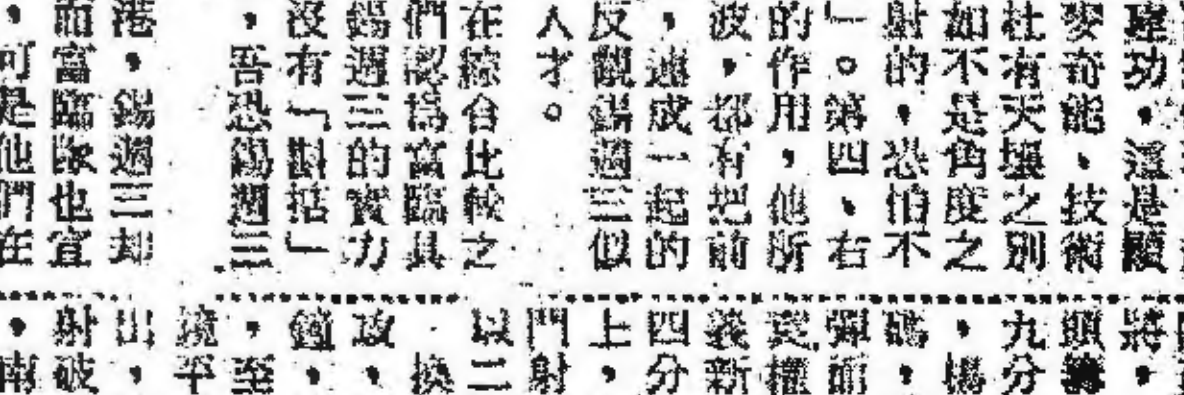 功，這是顯
麥奇能、技術
杜有天壤之別
如不是角度之
射的，恐怕不
」。第四、右
的作用，他所
波，都有把前
，連成一起的
反觀錫週三似
人才。
在綜合比較之
們認爲富臨具
錫週三的實力
沒有「括」
吾恐錫週三
港，錫週三却
而富臨隊也宜
，可是他們在
將，
頭
九分
，
，
彈前
權
義新
四分
上，
門射
以二
換
攻，
鐘，
，至
平
出，
射破
，南